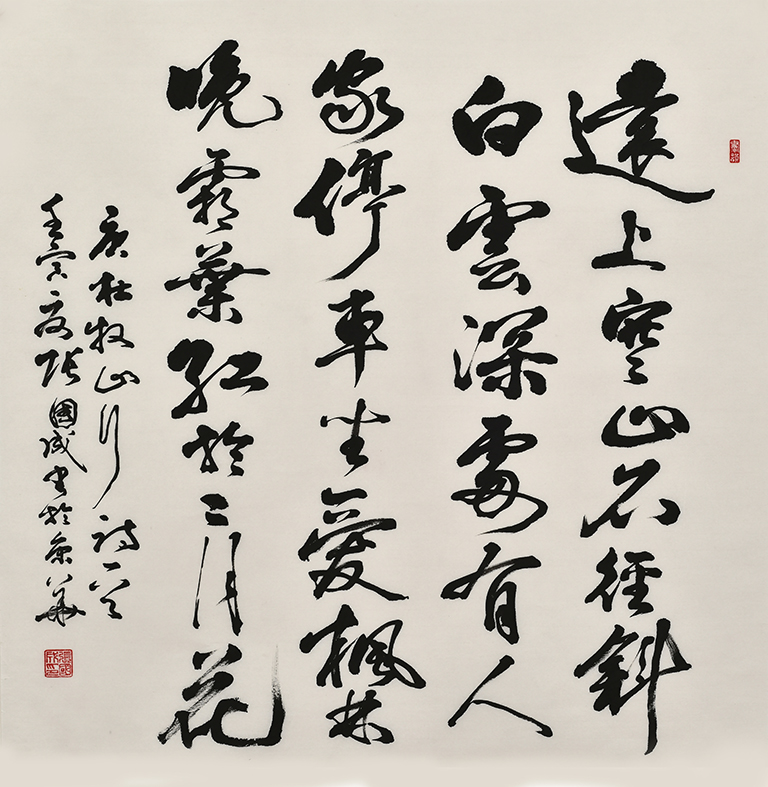 遠上寒山石徑斜
白雲深處有人
家停車坐愛楓林
晚霜葉紅於二月花
唐杜牧山行詩一首
壬寅夏張國成書於京華